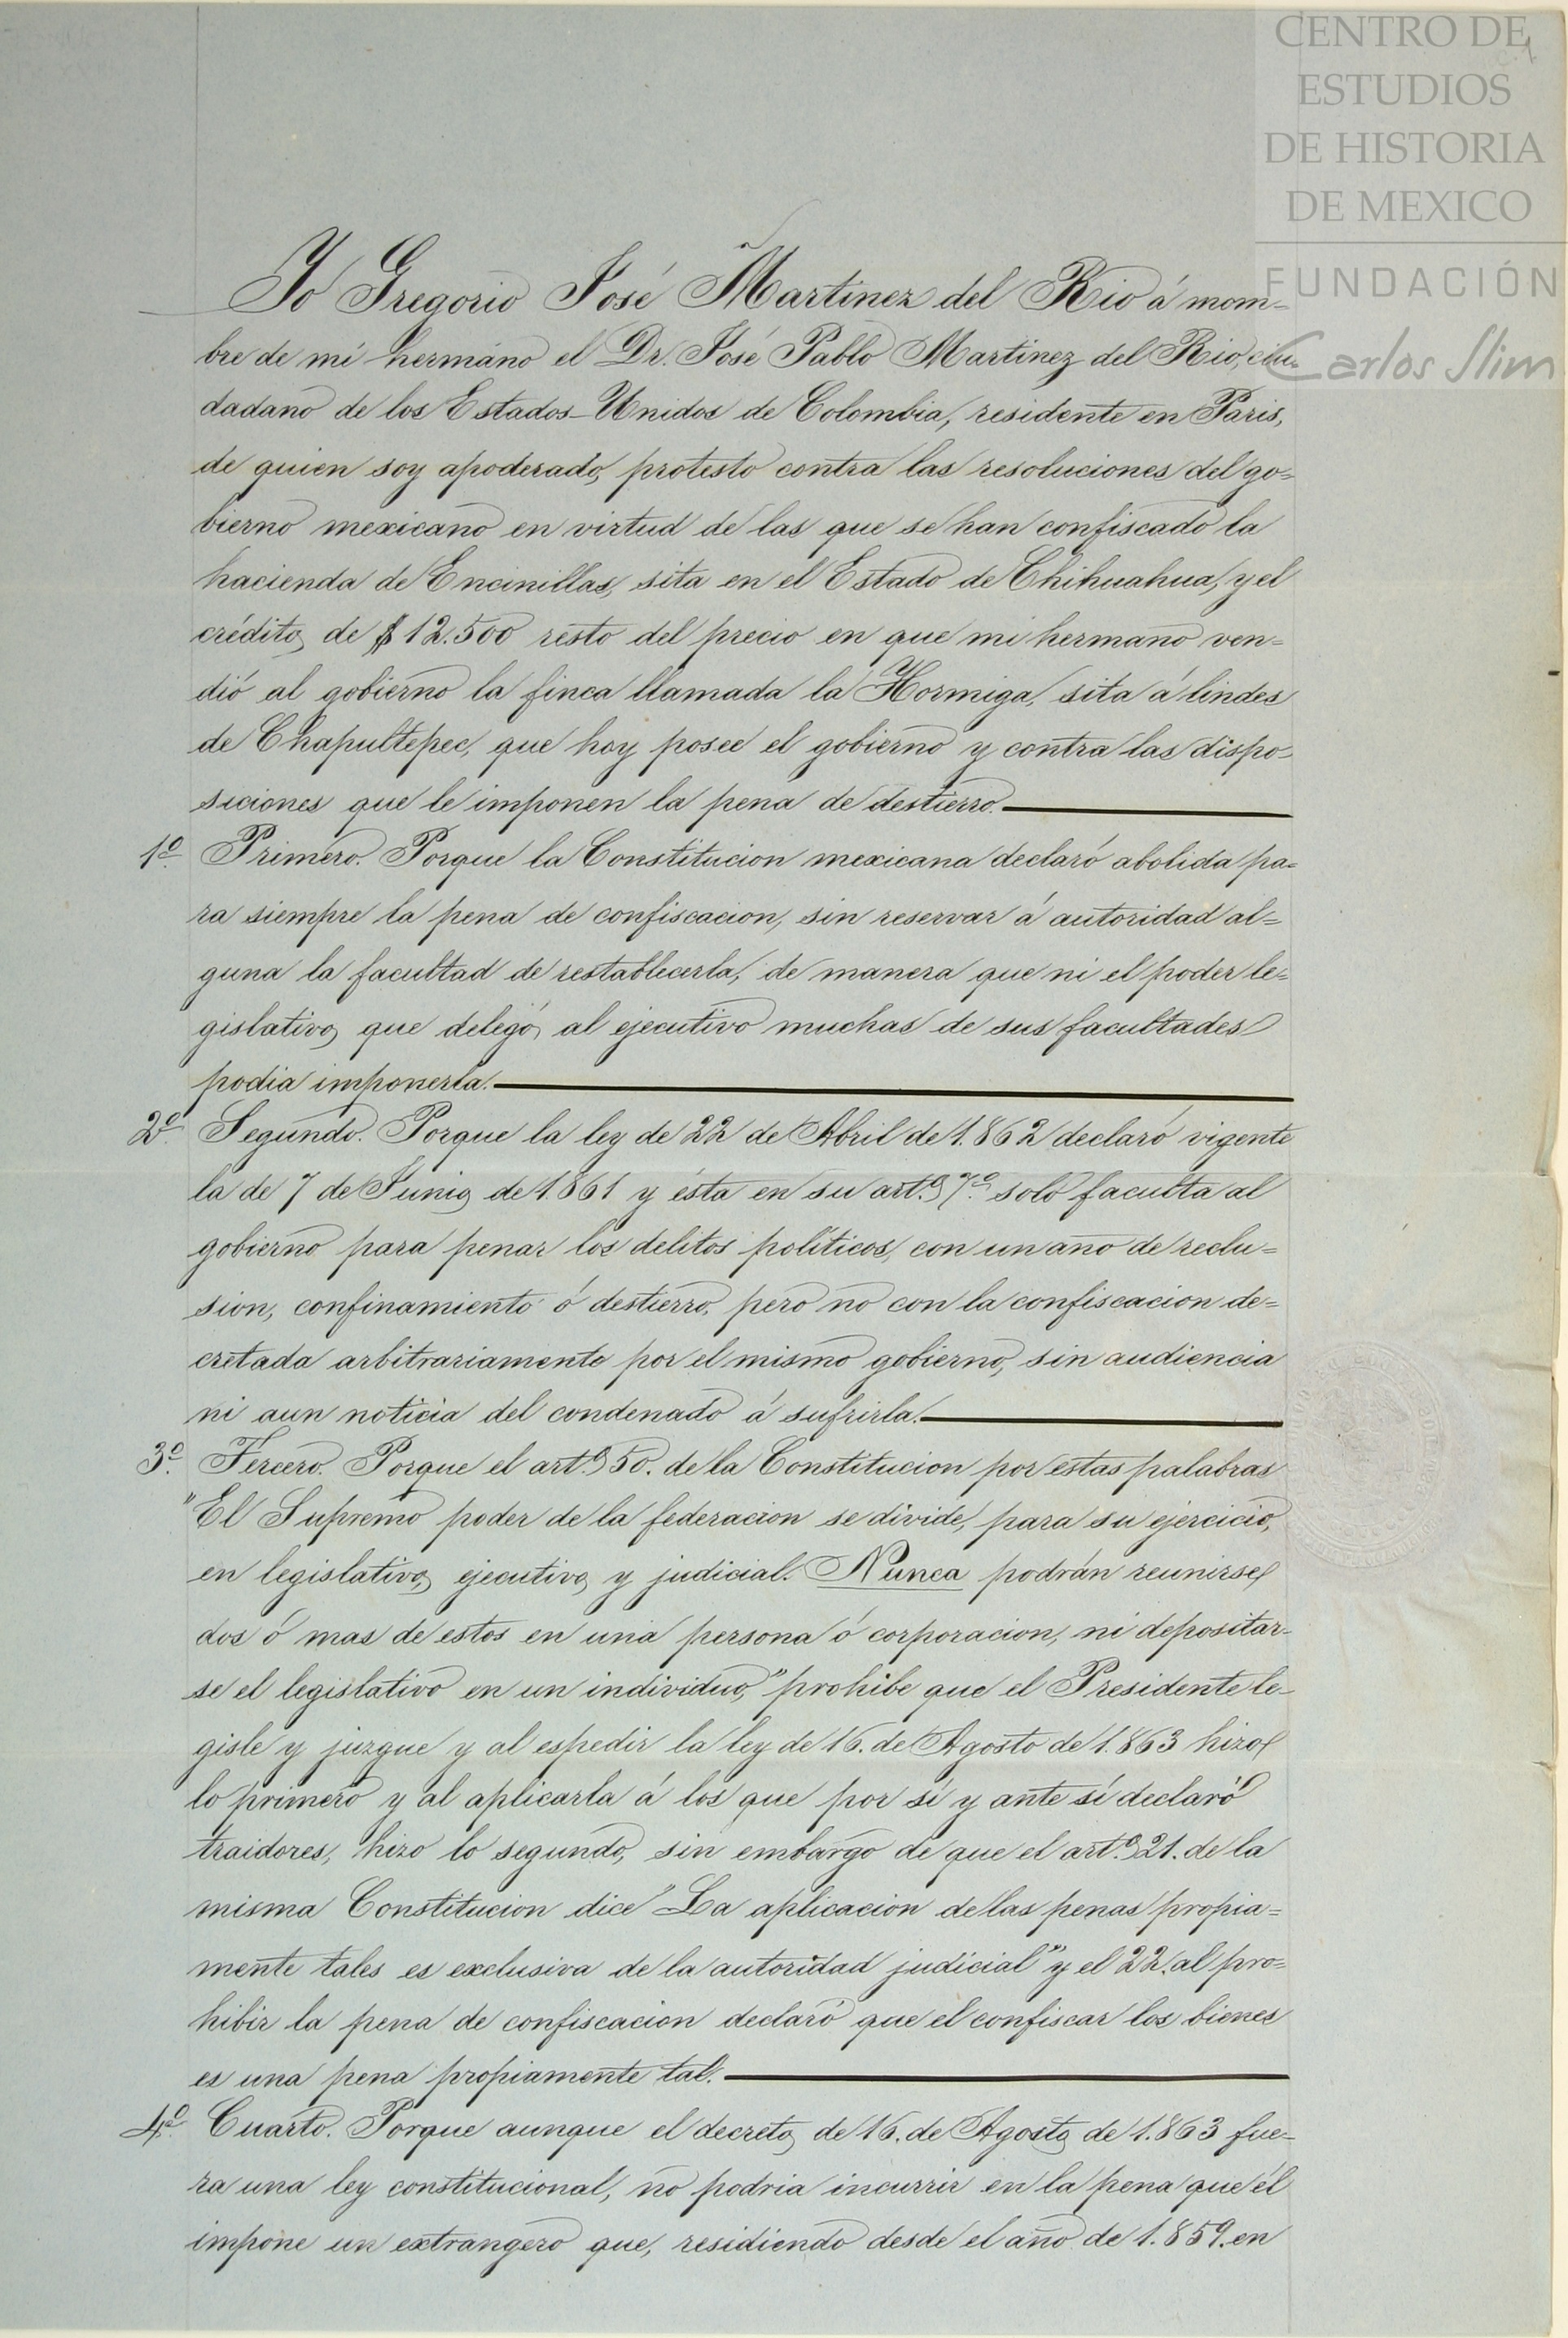 CENTRO DE
ESTUDIOS
DE HISTORIA
DE MEXICO
FUNDACIÓN
Carlos Slim
Yo Gregorio José Martinez del Rio á nom-
bre de mi hermano el Dr. José Pablo Martinez del Rio, ciu-
dadano de los Estados-Unidos de Colombia, residente en Paris,
de quien soy apoderado, protesto contra las resoluciones del go=
bierno mexicano en virtud de las que se han confiscado la
hacienda de Encinillas, sita en el Estado de Chihuahua, y el
crédito, de $12.500 resto del precio en que mi hermano ven=
dió al gobierno la finca llamada la Hormiga, sita á lindes
de Chapultepec, que hoy posee el gobierno y contra las dispo-
siciones que le imponen la pena de destierro.
1º Primero. Porque la Constitucion mexicana declaró abolida pa=
ra siempre la pena de confiscacion, sin reservar á autoridad al=
guna la facultad de restablecerla, de manera que ni el poder le=
gislativo, que delegó, al ejecutivo muchas de sus facultades
podia imponerla.
2º Segundo. Porque la ley de 22 de Abril de 1.862 declaró vigente
la de 7 de Junio, de 1861 y ésta en su artº 7º solo faculta al
gobierno para penar los delitos políticos, con un año de reclu=
sion, confinamiento ó destierro, pero no con la confiscacion de=
cretada arbitrariamente por el mismo gobierno, sin audiencia
ni aun noticia del condenado á sufrirla.
3º Tercero. Porque el artº 50. de la Constitucion por estas palabras
"El Supremo poder de la federacion se divide, para su ejercicio,
en legislativo, ejecutivo, y judicial. Nunca podrán reunirse
dos ó mas de estos en una persona ó corporacion, ni depositar-
se el legislativo en un individuo," prohibe que el Presidente le-
gisle y juzgue y al espedir la ley de 16. de Agosto de 1.863 hizo
lo primero y al aplicarla á los que por sí y ante sí declaró
traidores, hizo lo segundo, sin embargo de que el artº 21. de la
misma Constitucion dice "La aplicacion de las penas propia=
mente tales es exclusiva de la autoridad judicial" y el 22. al pro=
hibir la pena de confiscacion declaró que el confiscar los bienes
es una pena propiamente tal.
4º Cuarto. Porque aunque el decreto, de 16. de Agosto, de 1.863 fue-
ra una ley constitucional, no podria incurrir en la pena que él
impone un extrangero que, residiendo desde el año de 1.859. en